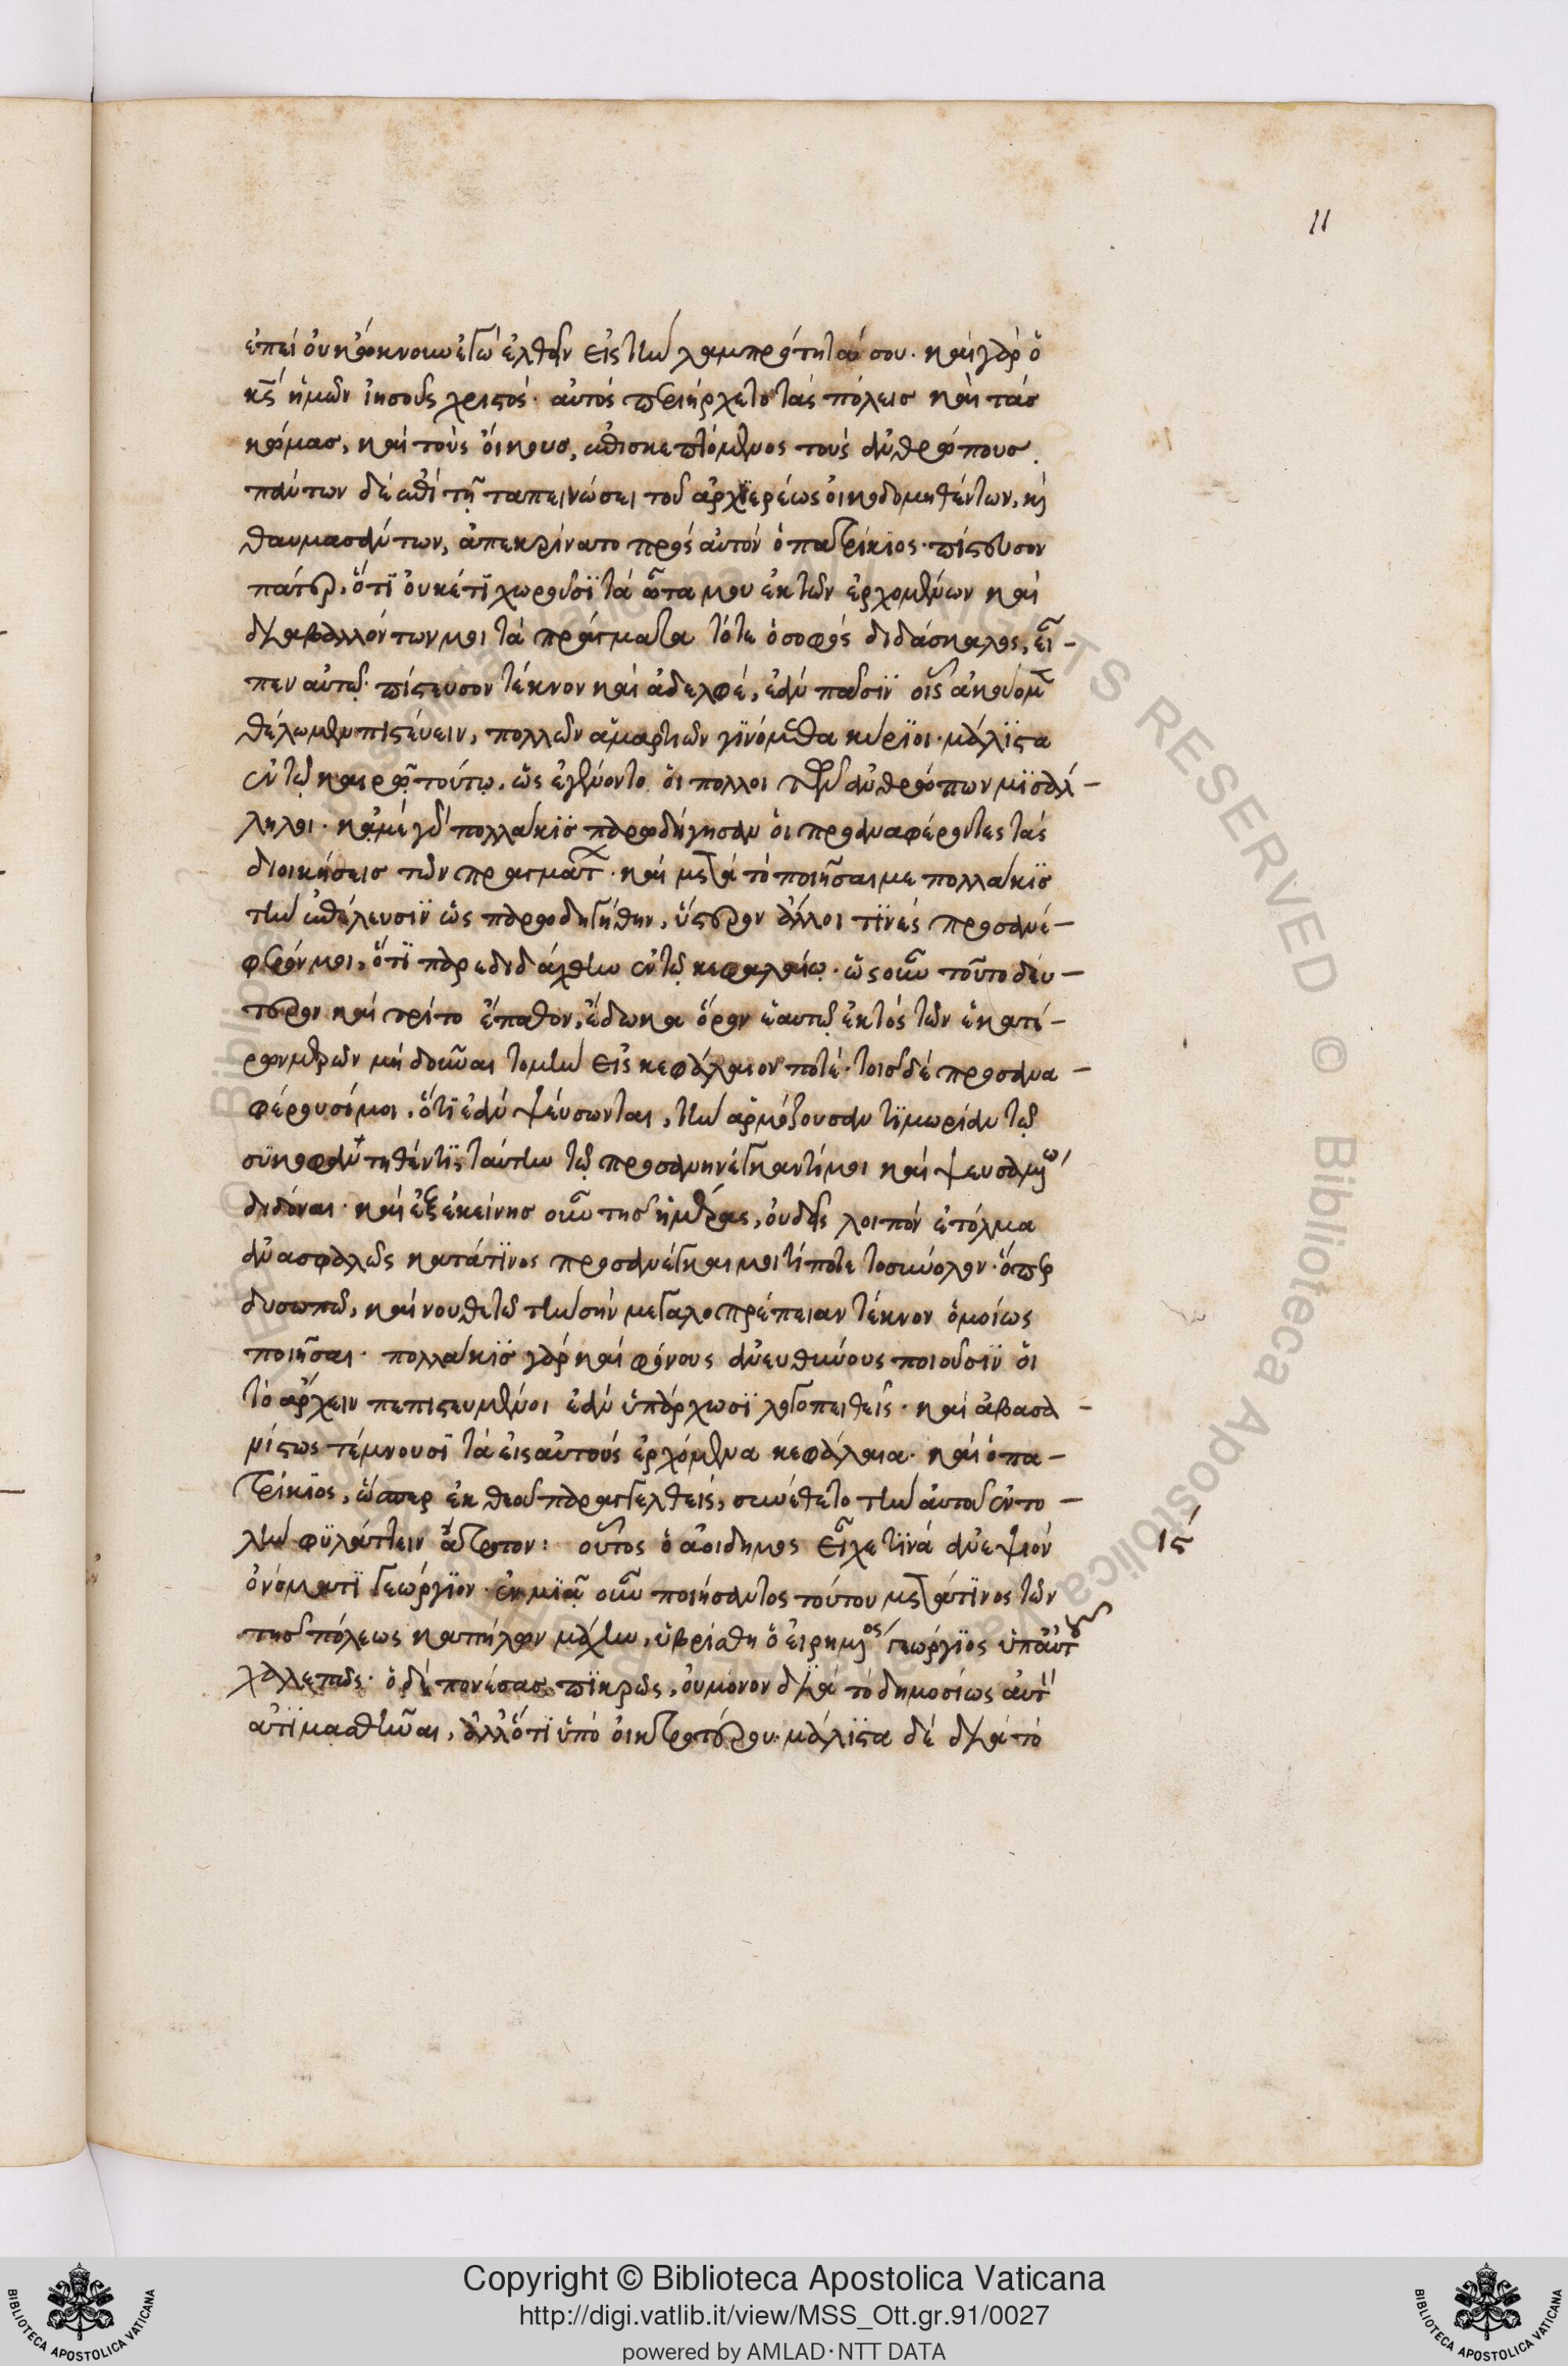 11
ἐπεὶ οὐκ ὤκνουν ἐγὼ ἐλθεῖν εἰς τὴν λαμπρότητά σου. καὶ γὰρ ὁ
κ̅ς̅ ἡμῶν ἰησοῦς χριστός· αὐτὸς περιήρχετο τὰς πόλεισ καὶ τὰσ
κώμασ, καὶ τοὺς οἴκουσ, ἐπισκεπτόμενος τοὺς ἀνθρώπουσ.
πάντων δὲ ἐπὶ τῇ ταπεινώσει τοῦ ἀρχϊερέως οἰκοδομηθέντων, κὶ
θαυμασάντων, ἀπεκρίνατο πρὸς αὐτὸν ὁ πατρίκιος· πίστευσον
πάτερ, ὅτϊ οὐκέτϊ χωροῦσϊ τὰ ὦτα μου ἐκ τῶν ἐρχομένων καὶ
διαβαλλόντων μοι τὰ πράγματα τότε ὁ σοφὸς διδάσκαλος, εἶ-
πεν αὐτῷ· πίστευσον τέκνον καὶ ἀδελφέ, ἐὰν πᾶσϊν οἷς ἀκούομ
θέλωμεν πιστεύειν, πολλῶν ἁμαρτιῶν γϊνόμεθα κύρϊοι· μάλϊστα
ἐν τῷ καιρῷ τούτῳ, ὡς ἐγένοντο οἱ πολλοι τῶν ἀνθρώπων μϊσάλ-
ληλοι· κᾀμὲ γὰρ πολλάκϊσ παρωδήγησαν οἱ προσαναφέροντες τὰς
διοικήσεισ τῶν πραγμάτ· καὶ μετὰ τὸ ποιῆσαι με πολλάκϊσ
τὴν ἐπέλευσϊν ὡς παρωδηγήθην, ὕστερον ἄλλοι τϊνὲς προσανέ-
φερόν μοι, ὅτϊ παρεδιδάχθην ἐν τῷ κεφαλαίῳ· ὡς οὖν τοῦτο δεύ-
τερον καὶ τρίτο ἔπαθον, ἔδωκα ὅρον ἑαυτῷ ἐκτὸς τῶν ἑκατέ-
ρων μερῶν μὴ δοῦναι τομὴν εἰς κεφάλαιον ποτέ· τοῖσ δὲ προσανα-
φέρουσί μοι, ὅτϊ ἐὰν ψεύσωνται, τὴν ἁρμόζουσαν τϊμωρίαν τῷ
συκοφαντηθέντϊς ταύτην τῷ προσανηνέγκαντί μοι καὶ ψευσαμέν
διδόναι· καὶ ἐξ ἐκείνησ οὖν τησ ἡμέρας, οὐδεὶς λοιπὸν ἐτόλμα
ἀνασφαλῶς κατά τϊνος προσανέγκαι μοι τί ποτε τοσύνολον· ὅπερ
δυσωπῶ, καὶ νουθετῶ τὴν σὴν μεγαλοπρέπειαν τέκνον ὁμοίως
ποιῆσαι· πολλάκϊσ γὰρ καὶ φόνους ἀνευθύνους ποιοῦσϊν οἱ
τὸ ἄρχειν πεπιστευμένοι ἐὰν ὑπάρχωσϊ λογοπειθεῖς· καὶ ἀβασα-
νίστως τέμνουσϊ τὰ εἰς αὐτοὺς ἐρχόμενα κεφάλαια· καὶ ὁ πα-
τρίκϊος, ὥσπερ ἐκ θεοῦ παραγγελθεὶς, συνέθετο τὴν αὐτοῦ ἐντο-
λὴν φϋλάττειν ἄτρωτον: οὗτος ὁ ἀοιδημος εἶχε τϊνὰ ἀνεψιὸν
ις
ὀνόματϊ γεώργϊον· ἐν μϊᾷ οὖν ποιήσαντος τούτου μετά τϊνος τῶν
τησ πόλεως καπήλων μάχην, ὑβρίσθη ὁ εἰρημένος γεώργϊος ὑπ' αὐτοῦ
χαλεπῶς· ὁ δὲ πονέσασ πϊκρῶς, οὐ μόνον διὰ τὸ δημοσίως αὐτὸν
ἀτϊμασθῆναι, ἀλλ' ὅτϊ ὑπὸ οἰκτροτέρου· μάλϊστα δὲ διὰ τὸ
Copyright © Biblioteca Apostolica Vaticana
http://digi.vatlib.it/view/MSS_Ott.gr.91/0027
powered by AMLAD·NTT DATA